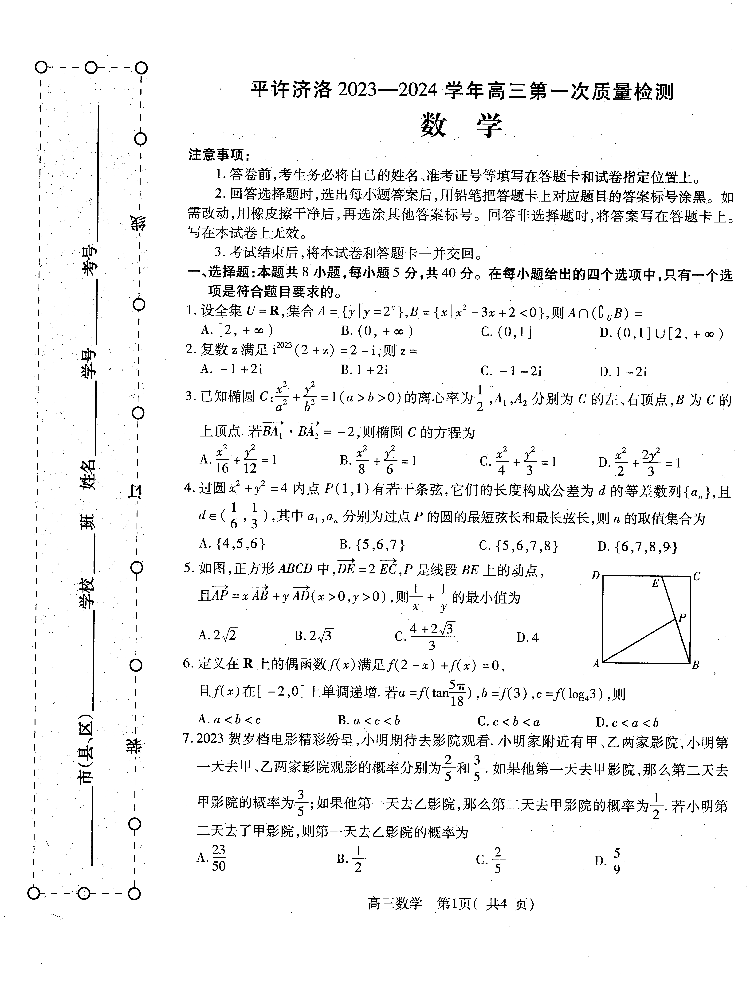 平许济洛 2023—2024 学年高三第一次质量检测
数 学
注意事项：
1. 答卷前,考生务必将自己的姓名、准考证号等填写在答题卡和试卷指定位置上。
2. 回答选择题时,选出每小题答案后,用铅笔把答题卡上对应题目的答案标号涂黑。如
需改动,用橡皮擦干净后,再选涂其他答案标号。回答非选择题时,将答案写在答题卡上。
写在本试卷上无效。
3. 考试结束后,将本试卷和答题卡一并交回。
一、选择题:本题共 8 小题,每小题 5 分,共 40 分。在每小题给出的四个选项中,只有一个选
项是符合题目要求的。
1. 设全集 U = R,集合 A = {y|y = 2ˣ},B = {x|x² - 3x + 2 < 0},则 A∩(∁ᵤB) =
A. [2, + ∞ ) B. (0, + ∞ ) C. (0,1] D. (0,1]∪[2, + ∞ )
2. 复数 z 满足 i²⁰²³(2 + z) = 2 - i,则 z =
A. - 1 + 2i B. 1 + 2i C. - 1 - 2i D. 1 - 2i
3. 已知椭圆 C: x²/a² + y²/b² = 1(a > b > 0)的离心率为 1/2,A₁,A₂ 分别为 C 的左、右顶点,B 为 C 的
上顶点. 若 BA₁ · BA₂ = - 2,则椭圆 C 的方程为
A. x²/16 + y²/12 = 1 B. x²/8 + y²/6 = 1 C. x²/4 + y²/3 = 1 D. x²/2 + 2y²/3 = 1
4. 过圆 x² + y² = 4 内点 P(1,1)有若干条弦,它们的长度构成公差为 d 的等差数列{aₙ},且
d∈(1/6, 1/3),其中 a₁,aₙ 分别为过点 P 的圆的最短弦长和最长弦长,则 n 的取值集合为
A. {4,5,6} B. {5,6,7} C. {5,6,7,8} D. {6,7,8,9}
5. 如图,正方形 ABCD 中,DE = 2 EC,P 是线段 BE 上的动点,
且 AP = x AB + y AD(x > 0,y > 0),则 1/x + 1/y 的最小值为
A. 2√2 B. 2√3 C. (4 + 2√3)/3 D. 4
D E C
P
A B
6. 定义在 R 上的偶函数 f(x)满足 f(2 - x) + f(x) = 0,
且 f(x)在[ - 2,0]上单调递增. 若 a = f(tan 5π/18),b = f(3),c = f(log₄3),则
A. a < b < c B. a < c < b C. c < b < a D. c < a < b
7. 2023 贺岁档电影精彩纷呈,小明期待去影院观看. 小明家附近有甲、乙两家影院,小明第
一天去甲、乙两家影院观影的概率分别为 2/5 和 3/5. 如果他第一天去甲影院,那么第二天去
甲影院的概率为 3/5;如果他第一天去乙影院,那么第二天去甲影院的概率为 1/2. 若小明第
二天去了甲影院,则第一天去乙影院的概率为
A. 23/50 B. 1/2 C. 2/5 D. 5/9
高三数学 第1页( 共4 页)
市(县、区) 学校 班 姓名 学号 考号
装 订 线